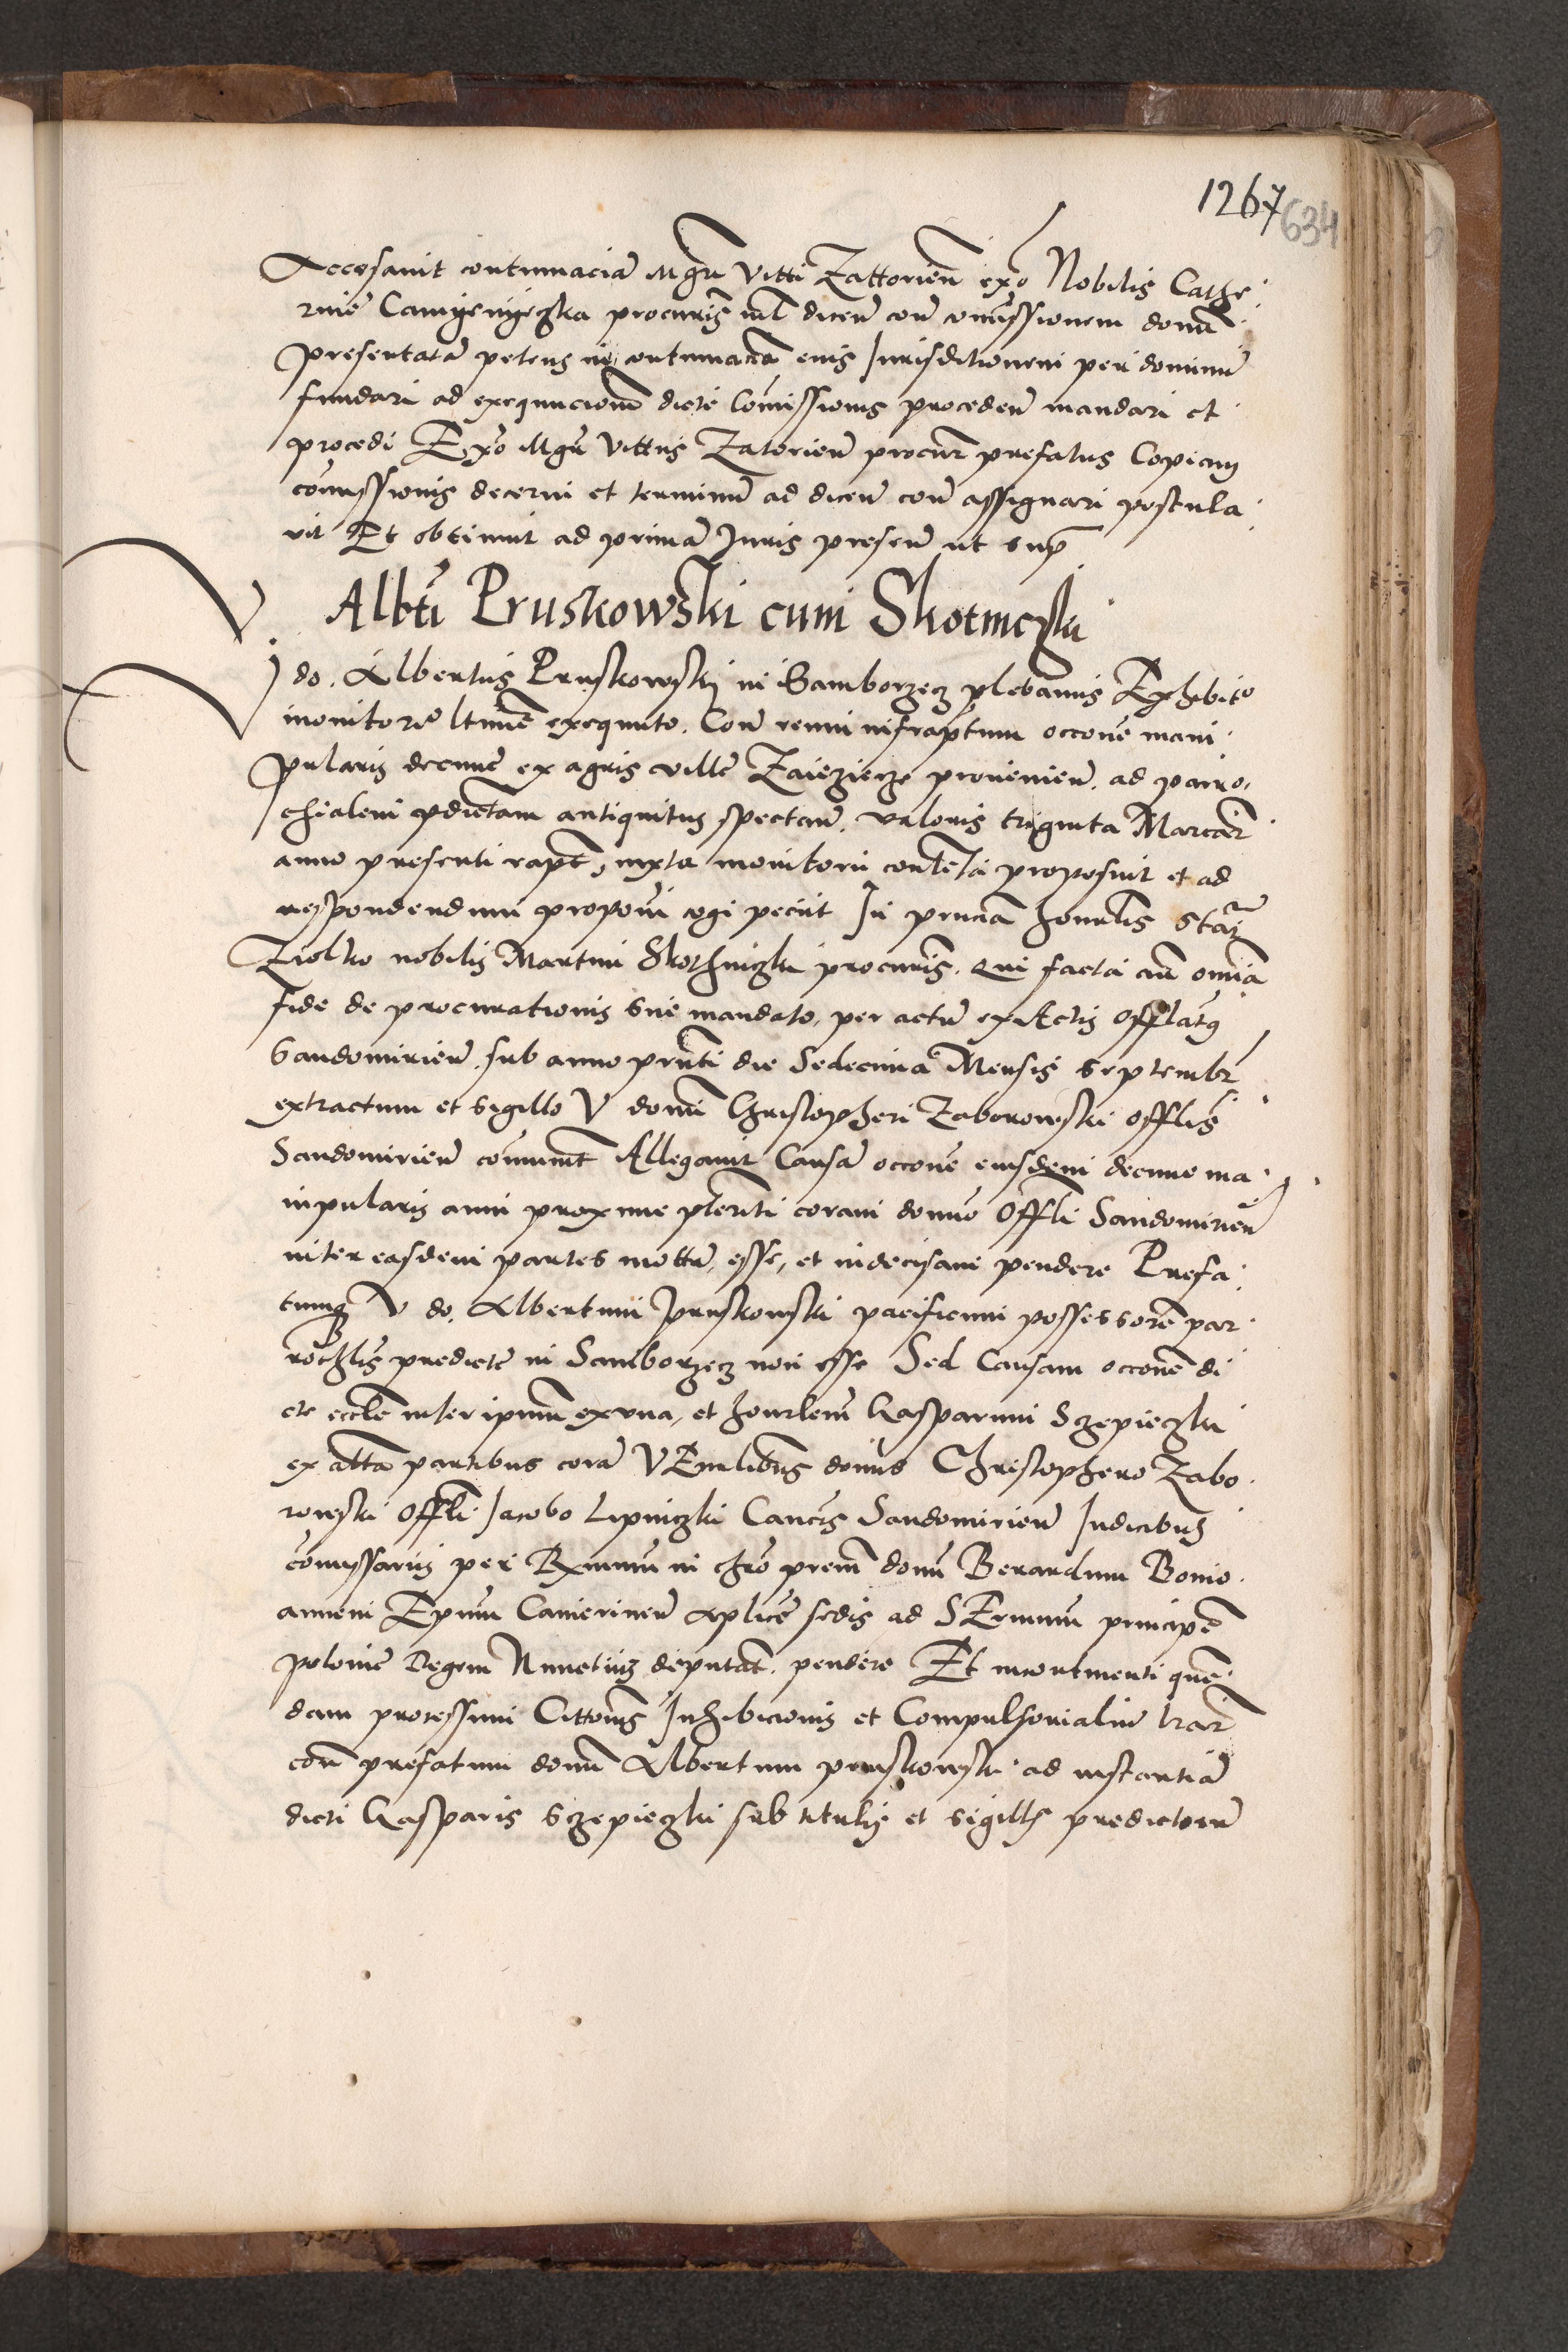 1267
634
Accusavit contumaciã Mgrũ Vitti Zattorieñ expo Nobilis Cathe
rine Camyenyeczka procuris nil diceñ coñ comissionem domũ
presentatã petens in contumaciã eius Jurisditionem per dominũ
fundari ad exequucionem dicte Comissionis procedeñ mandari et
procedi Expo Mgr Vittus Zatorieñ procur prefatus Copiam
comissionis decerni et terminũ ad diceñ coñ assignari postula
vit Et obtinuit ad primã Juris preseñ ut sup
Albti Pruskowski cum Skotniczki
V do. Albertus Pruskowskÿ in Samborzecz plebanus Exhibito
monitorio ltime exequuto. Coñ reum infraptum occone mani
pularis decime ex agris ville Zaiezierze provenieñ. ad parro
chialem pdictam antiquitus spectañ. valoris triginta Marcar
anno presenti rapt, iuxta monitorii contẽta proposuit et ad
respondendum propoui cogi peciit In pnciã honrlis Stai
Ziolko nobilis Martini Skothniczki procuris. Qui facta añ omiã
fide de procurationis sue mandato, per actũ ex Actis Offlatꝯ
Sandomirieñ. sub anno pñti die Sedecima Mensis Septembr
extractum et sigillo V domi Christopheri Zaborowski Offlis
Sandomirieñ comunit Allegavit Causã occone eiusdem decime ma
nipularis anni proxime pteriti coram domno Offli Sandomirieñ
inter easdem partes mottã, esse, et indecisam pendere Prefa
tumq V do. Albertum Pruskowski pacificum possessorẽ par
rochlis predicte in Samborzecz non esse Sed Causam occonẽ di
cte eccle inter ipsum ex una, et honrlem Gasparum Sczepieczki
ex altã partibus corã V Enlibus domis Christophero Zabo
rowski Offli Jacobo Lipniczki Cancis Sandomirieñ Judicibus
comissariis per Rxmum in chro prem domũ Berardum Bonio
annem Epum Camerineñ Aplice sedis ad SErmum principẽ
polonie Regem Nunctius deputat. pendere Et incontinenti quẽ
dam processum Cittonis Inhibicionis et Compulsorialiũ lrar
coñ prefatum domũ Albertum pruskowski ad instantiã
dicti Gasparis Sczepieczki sub titulis et sigillis predictorũ